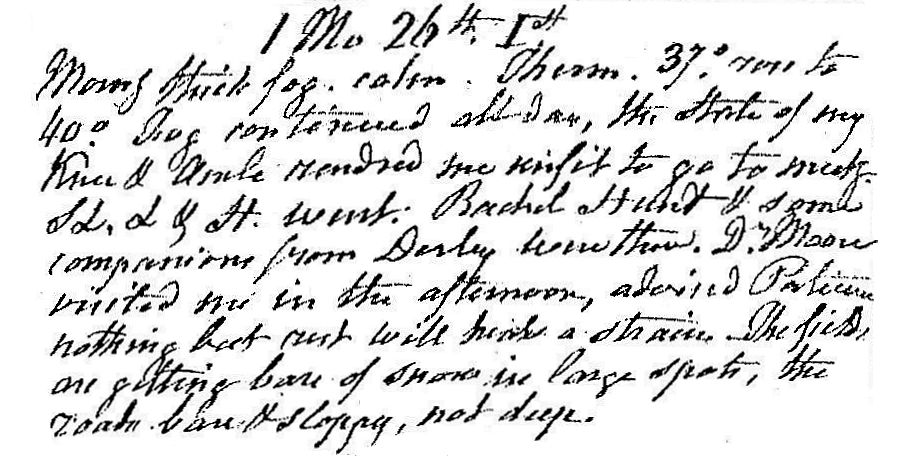 1 Mo 26th. 1st
Morng thick fog. calm. Therm. 37.° rose to
40° Fog continued all day, the state of my
Knee & Ancle rendred me unfit to go to meetg.
& H. went. Rachel Hunt & some
companions from Darby were there. Dr. Moore
visited me in the afternoon, advised Patience
nothing but rest will heal a strain. The fields
are getting bare of snow in large spots, the
roads bare & sloppy, not deep.